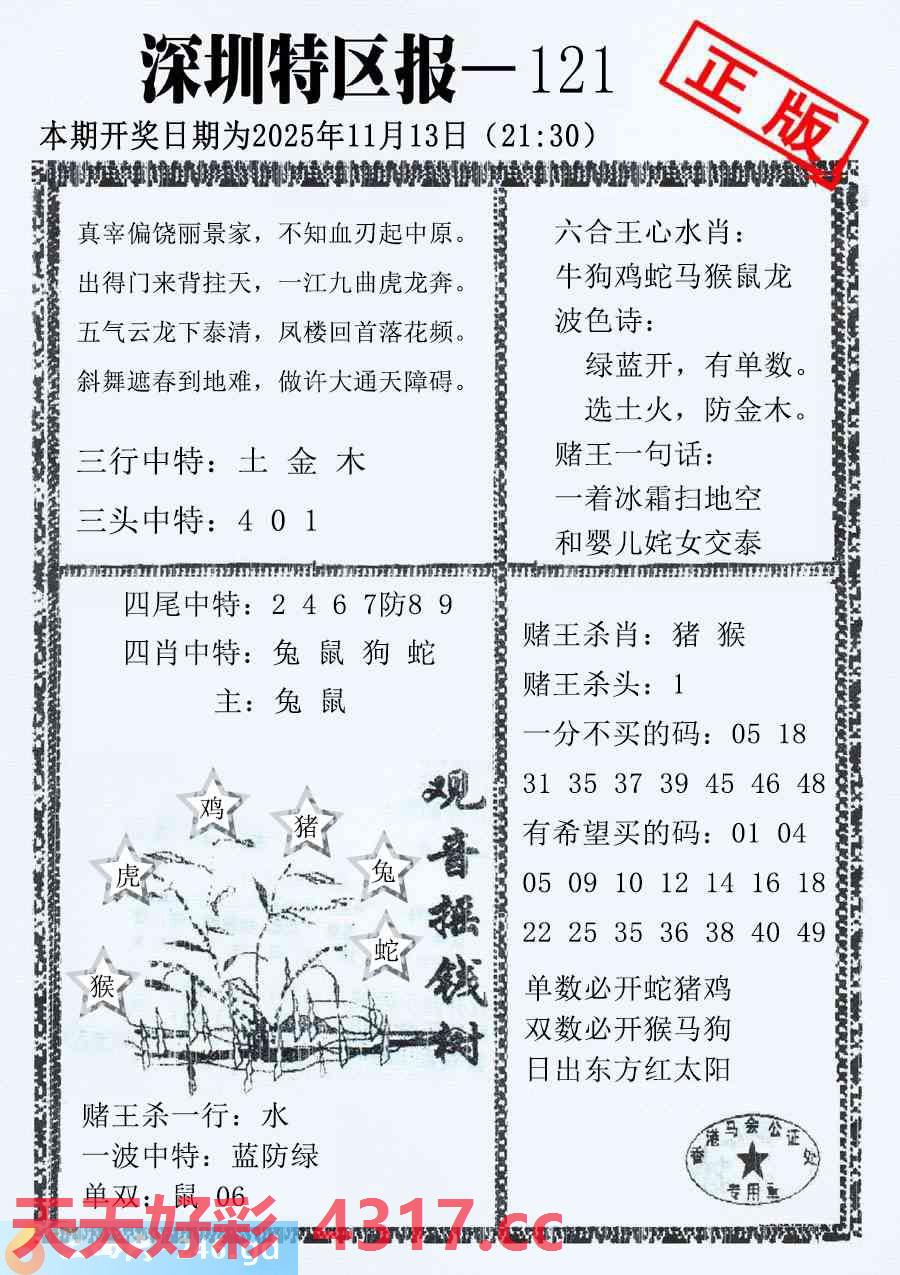 深圳特区报—121
正版
本期开奖日期为2025年11月13日（21:30）
真宰偏饶丽景家，不知血刃起中原。
出得门来背拄天，一江九曲虎龙奔。
五气云龙下泰清，凤楼回首落花频。
斜舞遮春到地难，做许大通天障碍。
三行中特：土 金 木
三头中特：4 0 1
六合王心水肖：
牛狗鸡蛇马猴鼠龙
波色诗：
绿蓝开，有单数。
选土火，防金木。
赌王一句话：
一着冰霜扫地空
和婴儿姹女交泰
四尾中特：2 4 6 7防8 9
四肖中特：兔 鼠 狗 蛇
主：兔 鼠
观音摇钱树
鸡
猪
虎
兔
蛇
猴
赌王杀一行：水
一波中特：蓝防绿
单双：鼠 06
赌王杀肖：猪 猴
赌王杀头：1
一分不买的码：05 18
31 35 37 39 45 46 48
有希望买的码：01 04
05 09 10 12 14 16 18
22 25 35 36 38 40 49
单数必开蛇猪鸡
双数必开猴马狗
日出东方红太阳
香港马会公证处
专用章
天天好彩 4317.cc